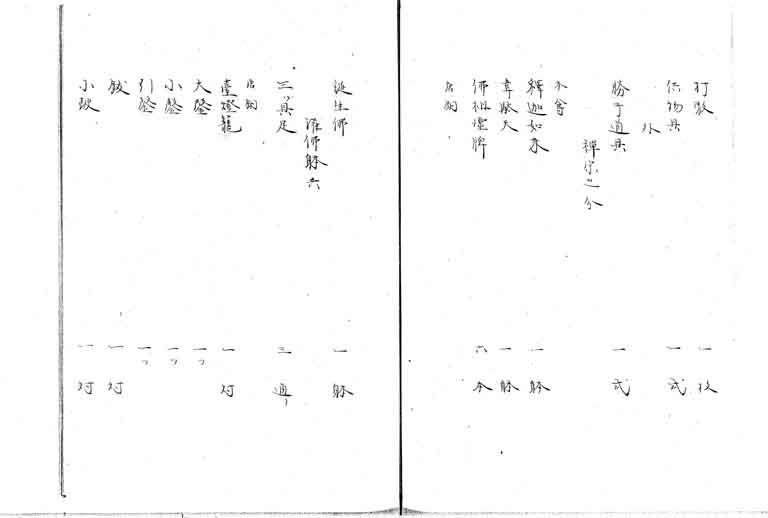 打敷 一枚
供物具 一式
外
勝手道具 一式
禅宗之分
木曽
釋迦如来 一躰
韋駄天 一躰
佛祖霊牌 六本
唐銅
誕生佛 一躰
灌佛躰共
三ツ具足 三通リ
唐銅
臺燈籠 一対
大磬 一ツ
小磬 一ツ
引磬 一ツ
鈸 一対
小鈸 一対